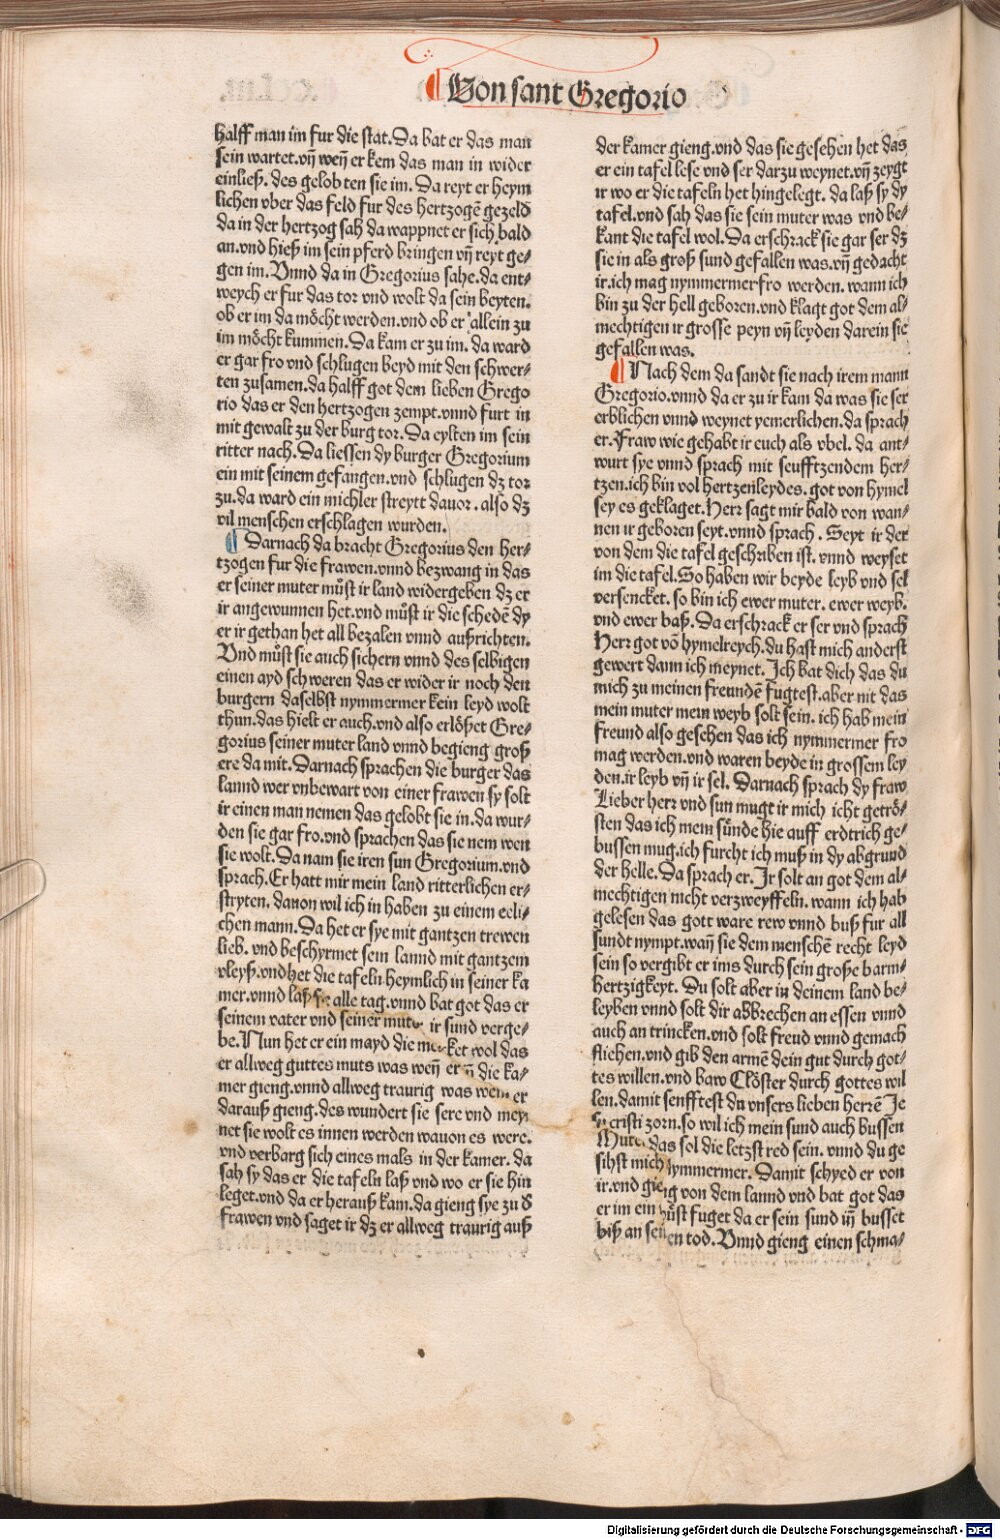 Von sant Gregorio
halff man im fur die stat. Da bat er das man
sein wartet. vn̄ wen̄ er kem das man in wider
einließ. des gelobten sie im. Da reyt er heym
lichen vber das feld fur des hertzogē gezeld
da in der hertzog sah da wappnet er sich bald
an. vnd hieß im sein pferd bringen vn̄ reyt ge⸗
gen im. Vnnd da in Gregorius sahe. da ent⸗
weych er fur das tor vnd wolt da sein beyten.
ob er im da möcht werden. vnd ob er allein zu
im möcht kummen. Da kam er zu im. da ward
er gar fro vnd schlugen beyd mit den schwer⸗
ten zusamen. da halff got dem lieben Grego
rio das er den hertzogen zempt. vnnd furt in
mit gewalt zu der burg tor. Da eylten im sein
ritter nach. Da liessen dy burger Gregorium
ein mit seinem gefangen. vnd schlugen dz tor
zu. da ward ein michler streytt dauor. also dz
vil menschen erschlagen wurden.
Darnach da bracht Gregorius den her⸗
tzogen fur die frawen. vnnd bezwang in das
er seiner muter můst ir land widergeben dz er
ir angewunnen het. vnd můst ir die schedē dy
er ir gethan het all bezalen vnnd außrichten.
Vnd můst sie auch sichern vnnd des selbigen
einen ayd schweren das er wider ir noch den
burgern daselbst nymmermer kein leyd wolt
thun. das hielt er auch. vnd also erlößet Gre⸗
gorius seiner muter land vnnd begieng groß
ere da mit. Darnach sprachen die burger das
lannd wer vnbewart von einer frawen sy solt
ir einen man nemen das gelobt sie in. da wur⸗
den sie gar fro. vnd sprachen das sie nem wen
sie wolt. Da nam sie iren sun Gregorium. vnd
sprach. Er hatt mir mein land ritterlichen er⸗
stryten. danon wil ich in haben zu einem eeli⸗
chen mann. Da het er sye mit gantzen trewen
lieb. vnd beschyrmet sein lannd mit gantzem
vleyß. vnd het die tafeln heymlich in seiner ka
mer. vnnd laß sie alle tag. vnnd bat got das er
seinem vater vnd seiner muter ir sund verge⸗
be. Nun het er ein mayd die mercket wol das
er allweg guttes muts was wen̄ er in̄ die ka⸗
mer gieng. vnnd allweg traurig was wenn er
darauß gieng. des wundert sie sere vnd mey⸗
net sie wolt es innen werden wauon es were.
vnd verbarg sich eines mals in der kamer. da
sah sy das er die tafeln laß vnd wo er sie hin
leget. vnd da er herauß kam. da gieng sye zu ð
frawen vnd saget ir dz er allweg traurig auß
der kamer gieng. vnd das sie gesehen het das
er ein tafel lese vnd ser darzu weynet. vn̄ zeygt
ir wo er die tafeln het hingelegt. da laß sy dy
tafel. vnd sah das sie sein muter was vnd be⸗
kant die tafel wol. Da erschrack sie gar ser dz
sie in als groß sund gefallen was. vn̄ gedacht
ir. ich mag nymmermer fro werden. wann ich
bin zu der hell geboren. vnd klagt got dem al⸗
mechtigen ir grosse peyn vn̄ leyden darein sie
gefallen was.
Nach dem da sandt sie nach irem mann
Gregorio. vnnd da er zu ir kam da was sie ser
erblichen vnnd weynet yemerlichen. da sprach
er. Fraw wie gehabt ir euch als vbel. da ant⸗
wurt sye vnnd sprach mit seufftzendem her⸗
tzen. ich bin vol hertzenleydes. got von hymel
sey es geklaget. Herr sagt mir bald von wan⸗
nen ir geboren seyt. vnnd sprach. Seyt ir der
von dem die tafel geschriben ist. vnnd weyset
im die tafel. So haben wir beyde leyb vnd sel
versencket. so bin ich ewer muter. ewer weyb.
vnd ewer baß. Da erschrack er ser vnd sprach
Herr got vō hymelreych. du hast mich anderst
gewert dann ich meynet. Ich bat dich das du
mich zu meinen freundē fugtest. aber nit das
mein muter mein weyb solt sein. ich hab mein
freund also gesehen das ich nymmermer fro
mag werden. vnd waren beyde in grossem ley
den. ir leyb vn̄ ir sel. Darnach sprach dy fraw
Lieber herr vnd sun mugt ir mich icht getrö⸗
sten das ich mein sünde hie auff erdtrich ge⸗
bussen mug. ich furcht ich muß in dy abgrund
der helle. Da sprach er. Ir solt an got dem al⸗
mechtigen nicht verzweyffeln. wann ich hab
gelesen das gott ware rew vnnd buß fur all
sundt nympt. wan̄ sie dem menschē recht leyd
sein so vergibt er ims durch sein große barm⸗
hertzigkeyt. Du solt aber in deinem land be⸗
leyben vnnd solt dir abbrechen an essen vnnd
auch an trincken. vnd solt freud vnnd gemach
fliehen. vnd gib den armē dein gut durch got⸗
tes willen. vnd baw Clöster durch gottes wil
len. damit senfftest du vnsers lieben herrē Je
su cristi zorn. so wil ich mein sund auch bussen
Muter das sol die letzst red sein. vnnd du ge
sihst mich nymmermer. Damit schyed er von
ir. vnd gieng von dem lannd vnd bat got das
er im ein wůst fuget da er sein sund in̄ busset
biß an seinen tod. Vnnd gieng einen schma⸗
Digitalisierung gefördert durch die Deutsche Forschungsgemeinschaft - DFG